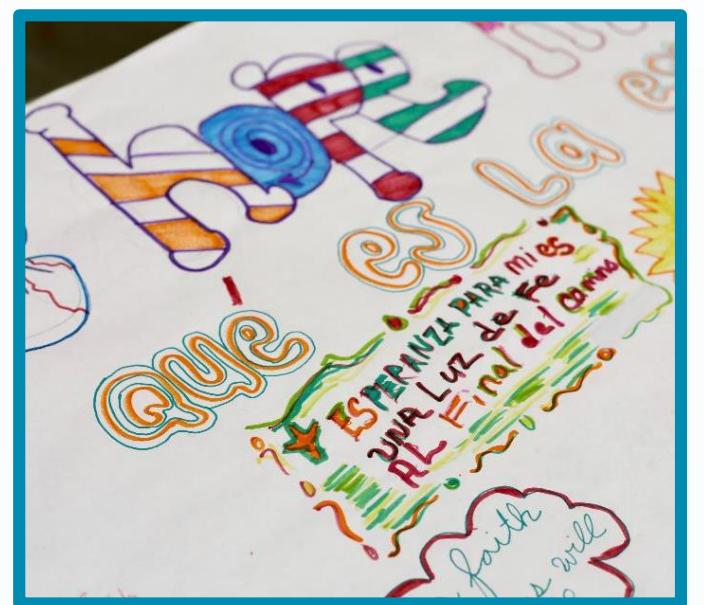 hope
Que es La
ESPERANZA PARA mi es
UNA LUZ de Fe
AL Final del camino
faith
will